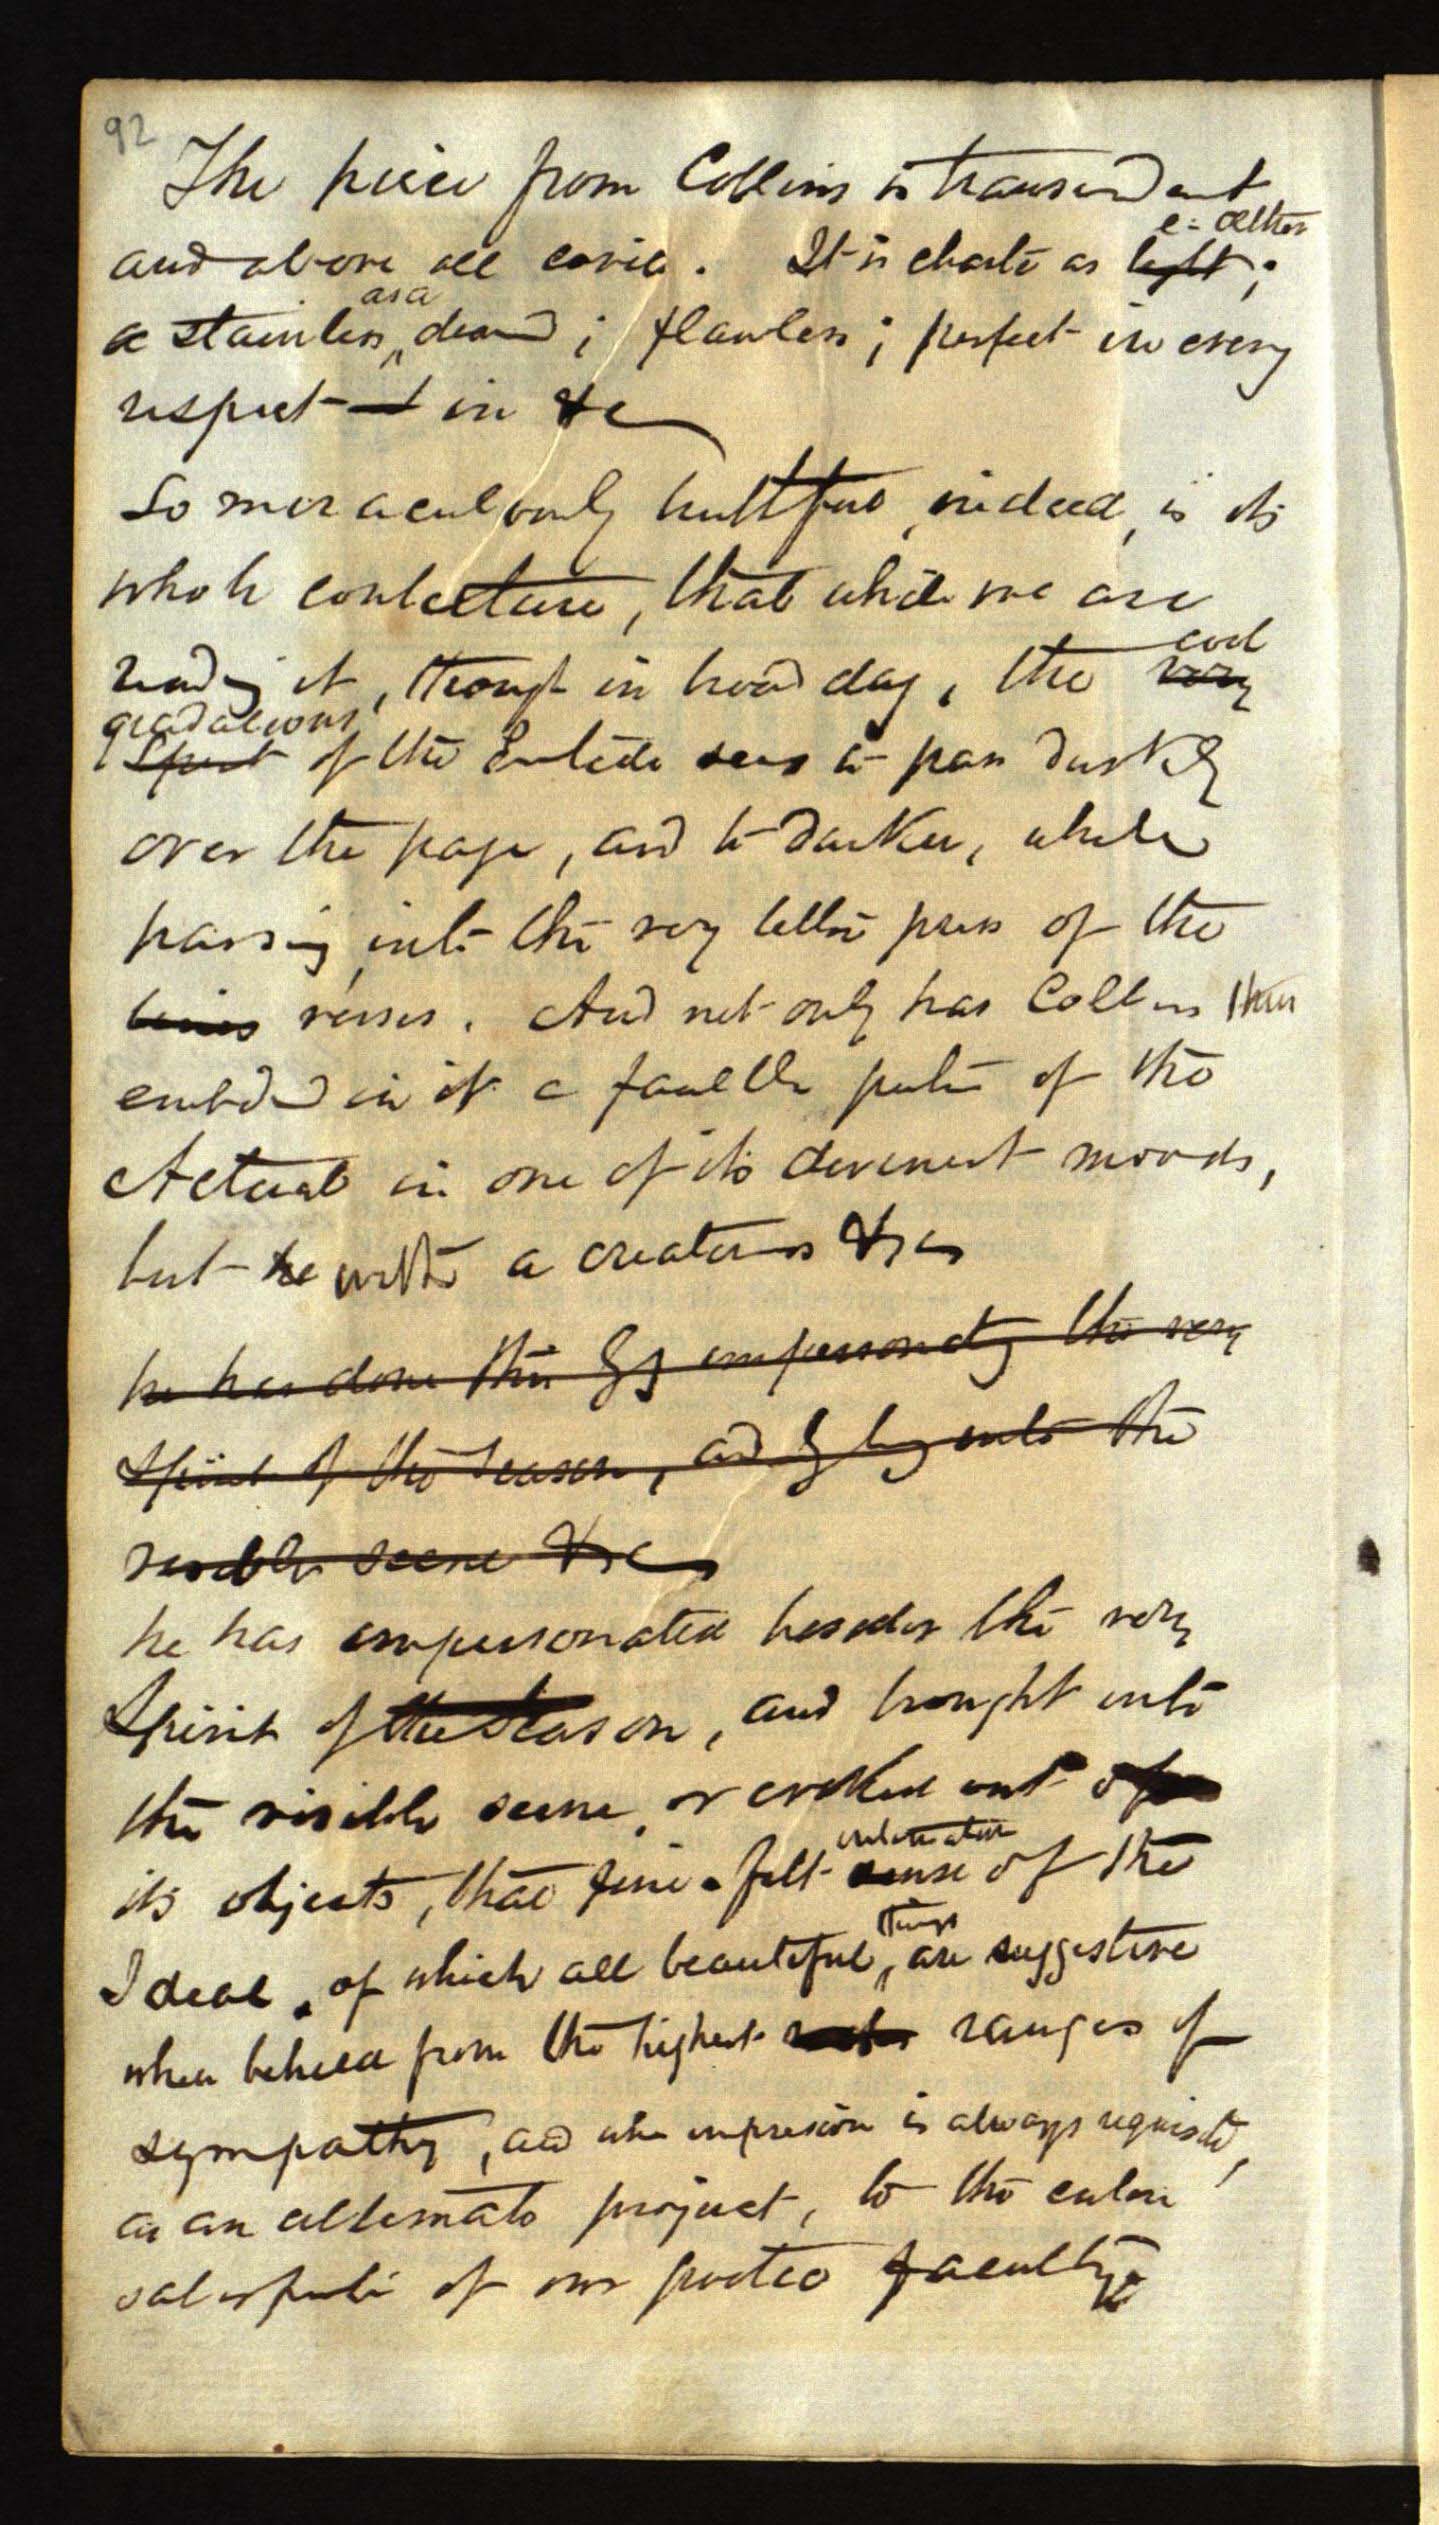 92
The piece from Collins is transcendent
and above all cavil. It is chaste as light ;
æther
as a
a stainless diamond ; flawless ; perfect in every
respect in &c
So miraculously truthful, indeed, is its
whole contexture, that while we are
reading it, though in broad day, the very
cool
gradations
Spirit of the Evetide seems to pass duskily
over the page, and to darken, while
passing into the very letter press of the
lines verses. And not only has Collins thus
embodied in it a faultless picture of the
Actual in one of its divinest moods,
but he with a creativeness &c
he has done this by impersonating the very
Spirit of the season, and by bringing into the
visible scene &c
he has impersonated besides the very
Spirit of the season, and brought into
the visible scene, or evoked out of
its objects, that fine-felt sense of the
things
Ideal, of which all beautiful are suggestive
when beheld from the highest ranges of
sympathy, and whose impression is always requisite,
as an ultimate project, to the entire
satisfaction of our poetic faculty